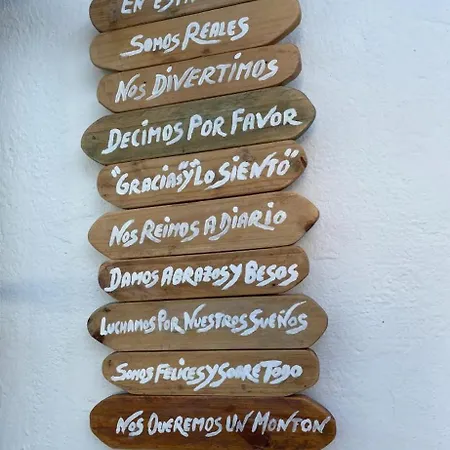 EN ESTA
SOMOS REALES
NOS DIVERTIMOS
DECIMOS POR FAVOR
"GRACIAS" Y "LO SIENTO"
NOS REIMOS A DIARIO
DAMOS ABRAZOS Y BESOS
LUCHAMOS POR NUESTROS SUEÑOS
SOMOS FELICES Y SOBRE TODO
NOS QUEREMOS UN MONTON